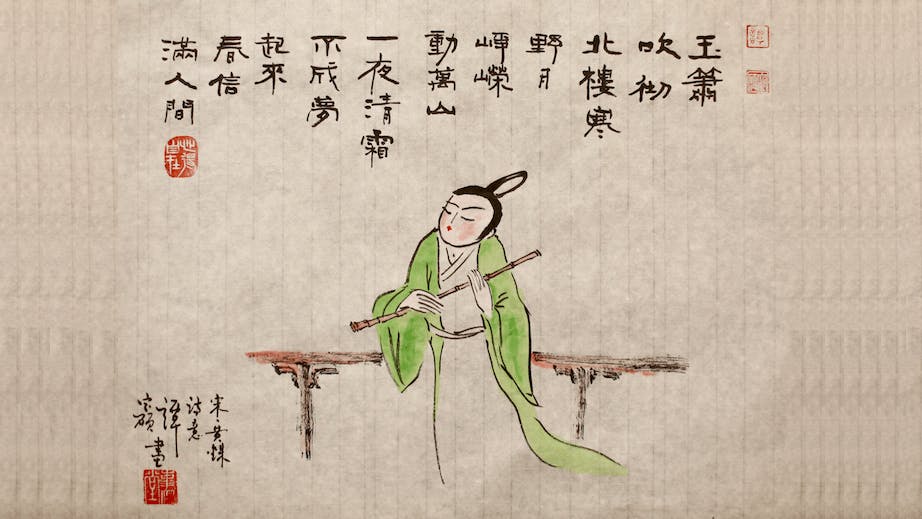 玉簫
吹彻
北樓寒
野月
崢嶸
動萬山
一夜清霜
不成夢
起來
春信
滿人間
宋黄铢
诗意
畫